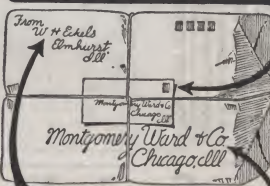 From
W H Eckels
Elmhurst,
Ill
Montgomery Ward & Co
Chicago,
Ill
Montgomery Ward & Co
Chicago, Ill